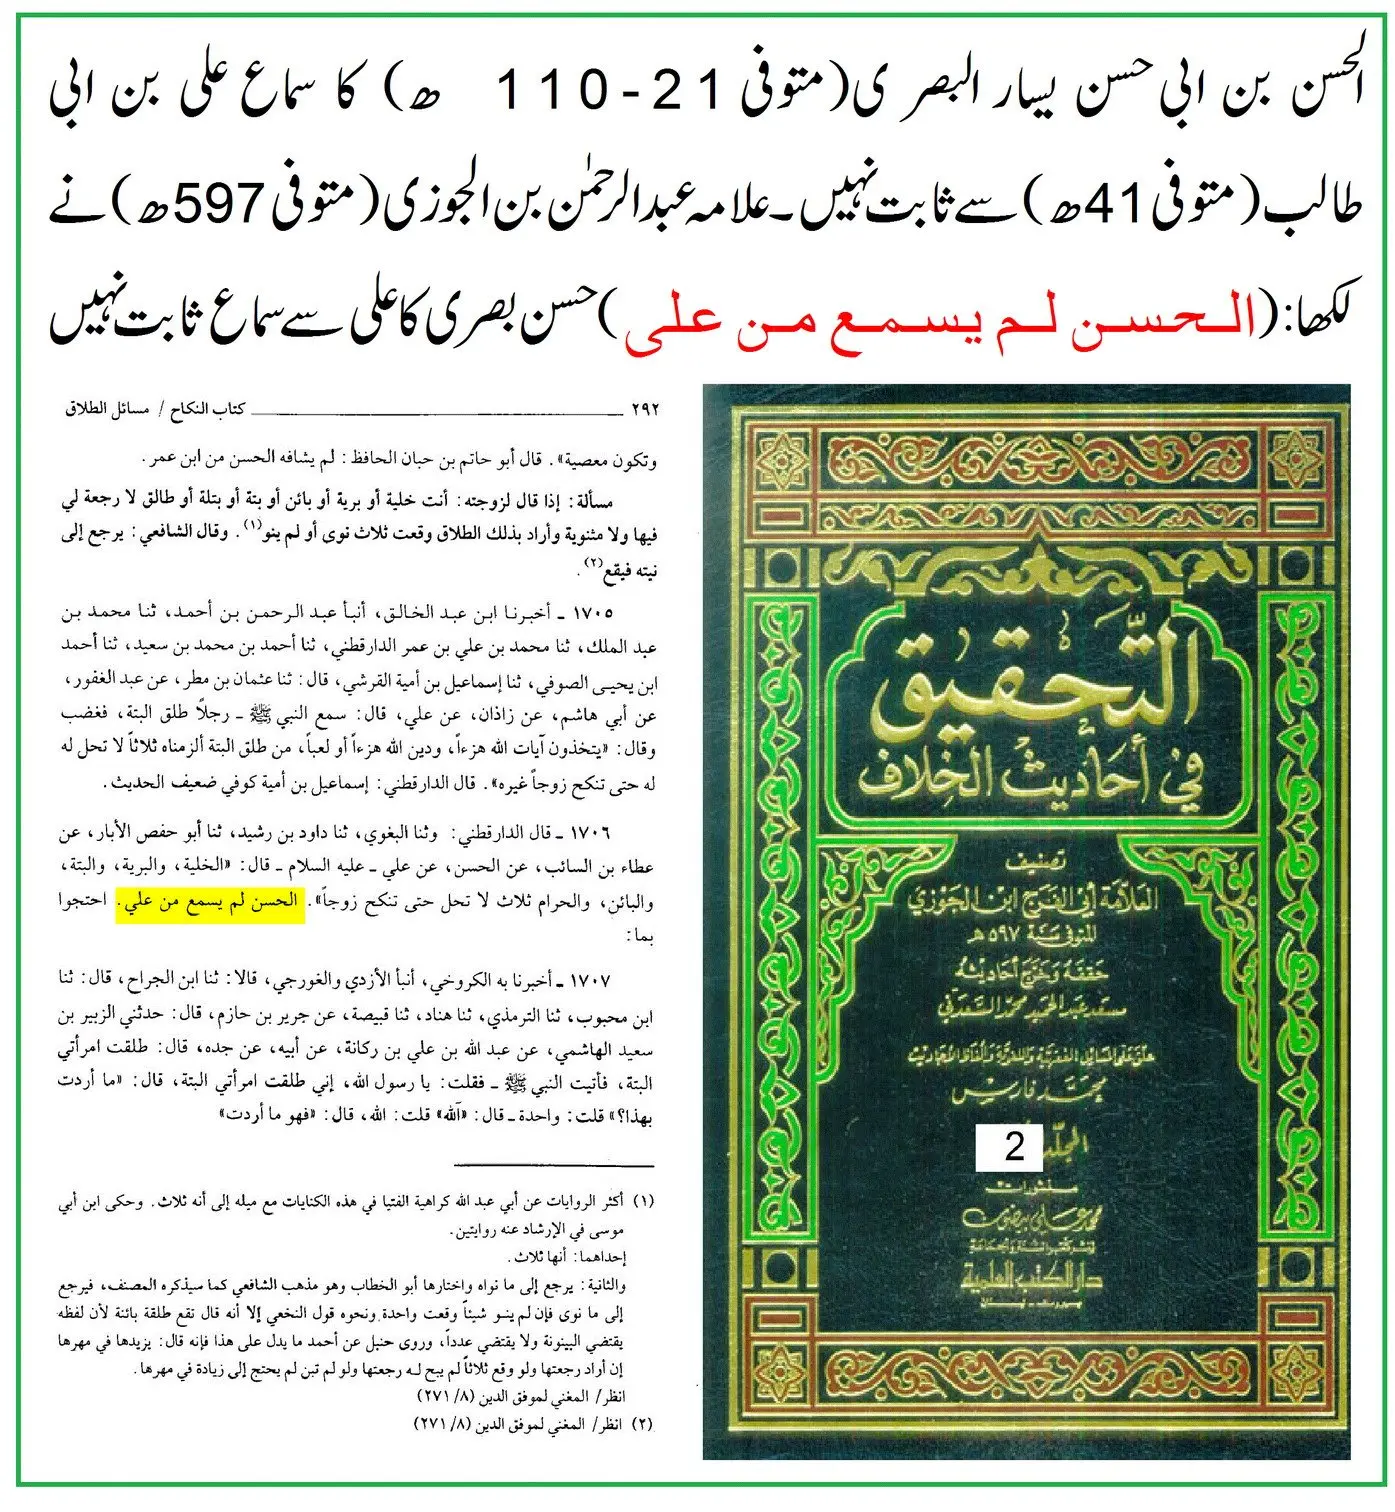 الحسن بن ابی حسن یسار البصری(متوفی 21-110 ھ) کا سماع علی بن ابی
طالب(متوفی41ھ)سے ثابت نہیں۔علامہ عبدالرحمٰن بن الجوزی(متوفی597ھ)نے
لکھا:(الحسن لم یسمع من علی)حسن بصری کا علی سے سماع ثابت نہیں
٢٩٢ كتاب النكاح / مسائل الطلاق
وتكون معصية». قال أبو حاتم بن حبان الحافظ: لم يشافه الحسن من ابن عمر.
مسألة: إذا قال لزوجته: أنت خلية أو برية أو بائن أو بتة أو بتلة أو طالق لا رجعة لي
فيها ولا مثنوية وأراد بذلك الطلاق وقعت ثلاث نوى أو لم ينو(١). وقال الشافعي: يرجع إلى
نيته فيقع(٢).
١٧٠٥ ـ أخبرنا ابن عبد الخالق، أنبأ عبد الرحمن بن أحمد، ثنا محمد بن
عبد الملك، ثنا محمد بن علي بن عمر الدارقطني، ثنا أحمد بن محمد بن سعيد، ثنا أحمد
ابن يحيى الصوفي، ثنا إسماعيل بن أمية القرشي، قال: ثنا عثمان بن مطر، عن عبد الغفور،
عن أبي هاشم، عن زاذان، عن علي، قال: سمع النبي ﷺ ـ رجلاً طلق البتة، فغضب
وقال: «يتخذون آيات الله هزءاً، ودين الله هزءاً أو لعباً، من طلق البتة ألزمناه ثلاثاً لا تحل له
له حتى تنكح زوجاً غيره». قال الدارقطني: إسماعيل بن أمية كوفي ضعيف الحديث.
١٧٠٦ ـ قال الدارقطني: وثنا البغوي، ثنا داود بن رشيد، ثنا أبو حفص الأبار، عن
عطاء بن السائب، عن الحسن، عن علي ـ عليه السلام ـ قال: «الخلية، والبرية، والبتة،
والبائن، والحرام ثلاث لا تحل حتى تنكح زوجاً». الحسن لم يسمع من علي. احتجوا
بما:
١٧٠٧ ـ أخبرنا به الكروخي، أنبأ الأزدي والغورجي، قالا: ثنا ابن الجراح، قال: ثنا
ابن محبوب، ثنا الترمذي، ثنا هناد، ثنا قبيصة، عن جرير بن حازم، قال: حدثني الزبير بن
سعيد الهاشمي، عن عبد الله بن علي بن ركانة، عن أبيه، عن جده، قال: طلقت امرأتي
البتة، فأتيت النبي ﷺ ـ فقلت: يا رسول الله، إني طلقت امرأتي البتة، قال: «ما أردت
بهذا؟» قلت: واحدة ـ قال: «آلله» قلت: الله، قال: «فهو ما أردت»
(١) أكثر الروايات عن أبي عبد الله كراهية الفتيا في هذه الكنايات مع ميله إلى أنه ثلاث. وحكى ابن أبي
موسى في الإرشاد عنه روايتين.
إحداهما: أنها ثلاث.
والثانية: يرجع إلى ما نواه واختارها أبو الخطاب وهو مذهب الشافعي كما سيذكره المصنف، فيرجع
إلى ما نوى فإن لم ينو شيئاً وقعت واحدة ونحوه قول النخعي إلا أنه قال تقع طلقة بائنة لأن لفظه
يقتضي البينونة ولا يقتضي عدداً، وروى حنبل عن أحمد ما يدل على هذا فإنه قال: يزيدها في مهرها
إن أراد رجعتها ولو وقع ثلاثاً لم يبح له رجعتها ولو لم تبن لم يحتج إلى زيادة في مهرها.
انظر/ المغني لموفق الدين (٨/ ٢٧١)
(٢) انظر/ المغني لموفق الدين (٨/ ٢٧١)
التحقيق
في أحاديث الخلاف
تصنيف
العلامة أبي الفرج ابن الجوزي
المتوفى سنة ٥٩٧هـ
حققه وخرج أحاديثه
مسعد عبد الحميد محمد السعدني
علق على المسائل الفقهية واللغوية وألفاظ الأحاديث
محمد فارس
المجلد 2
منشورات
محمد علي بيضون
لنشر كتب السنة والجماعة
دار الكتب العلمية
بيروت - لبنان